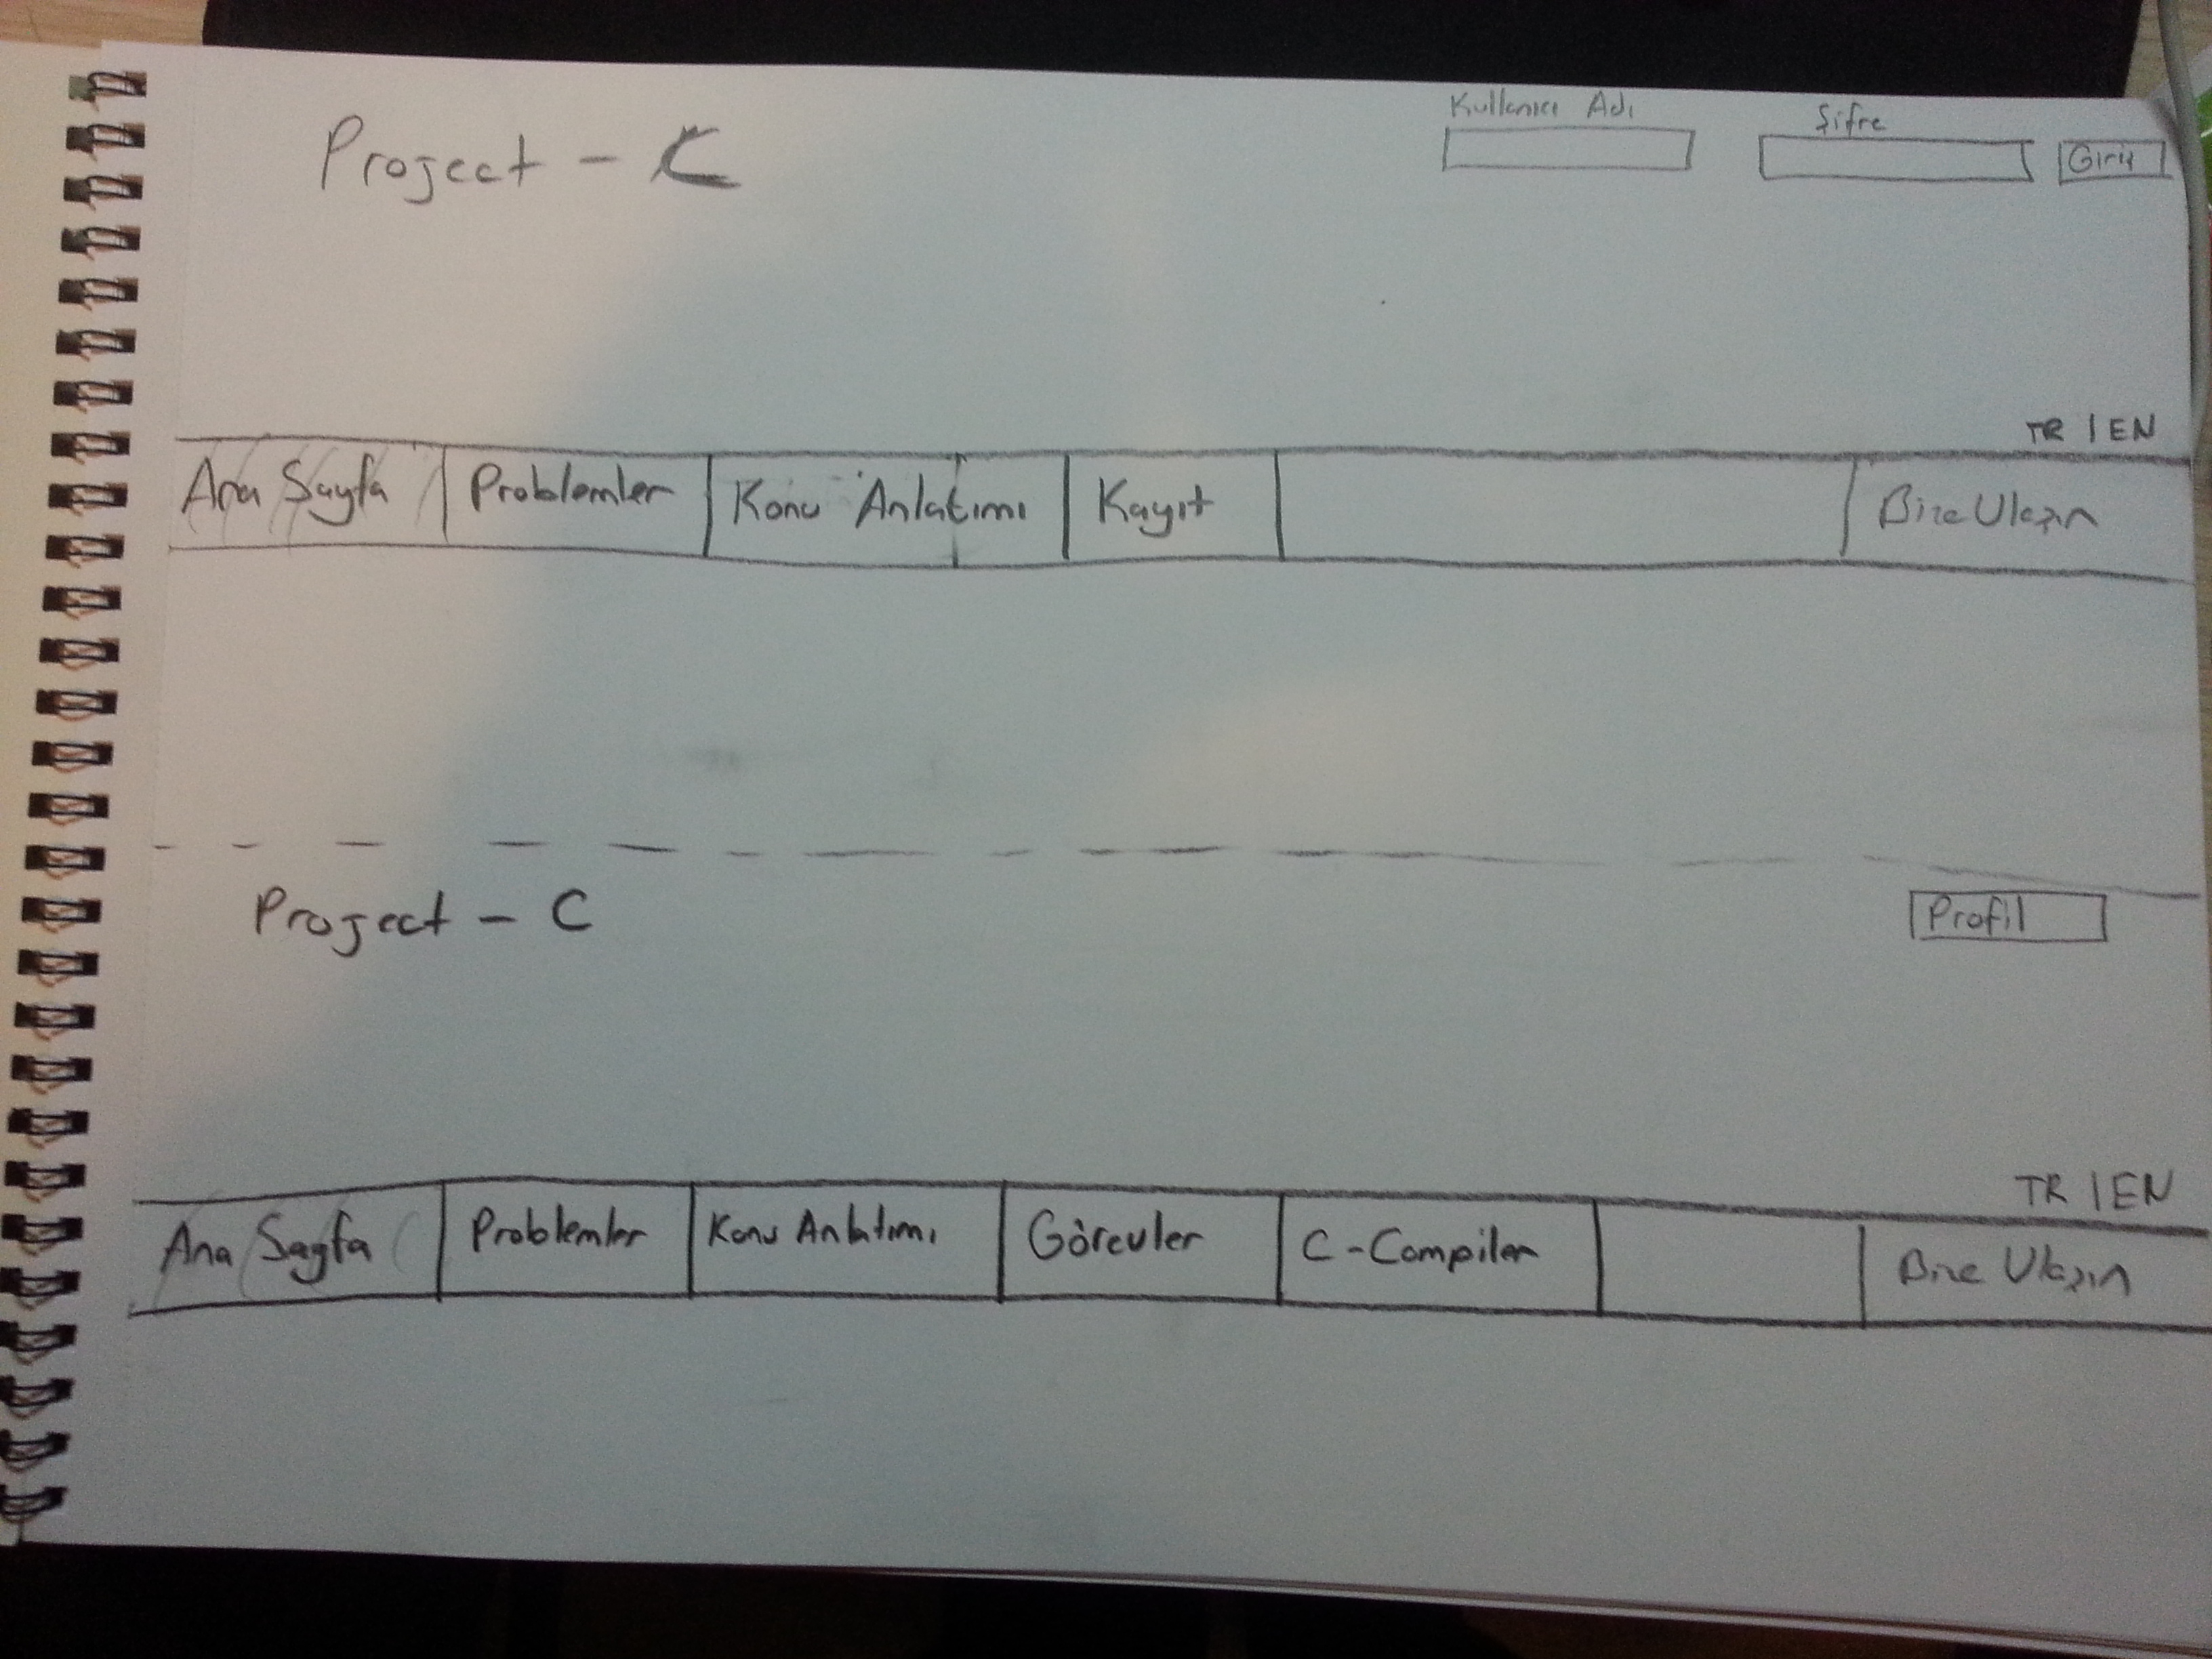 Project - C
Kullanıcı Adı Şifre
Giriş
TR | EN
Ana Sayfa Problemler Konu Anlatımı Kayıt Bize Ulaşın
Project - C
Profil
TR | EN
Ana Sayfa Problemler Konu Anlatımı Görevler C-Compiler Bize Ulaşın